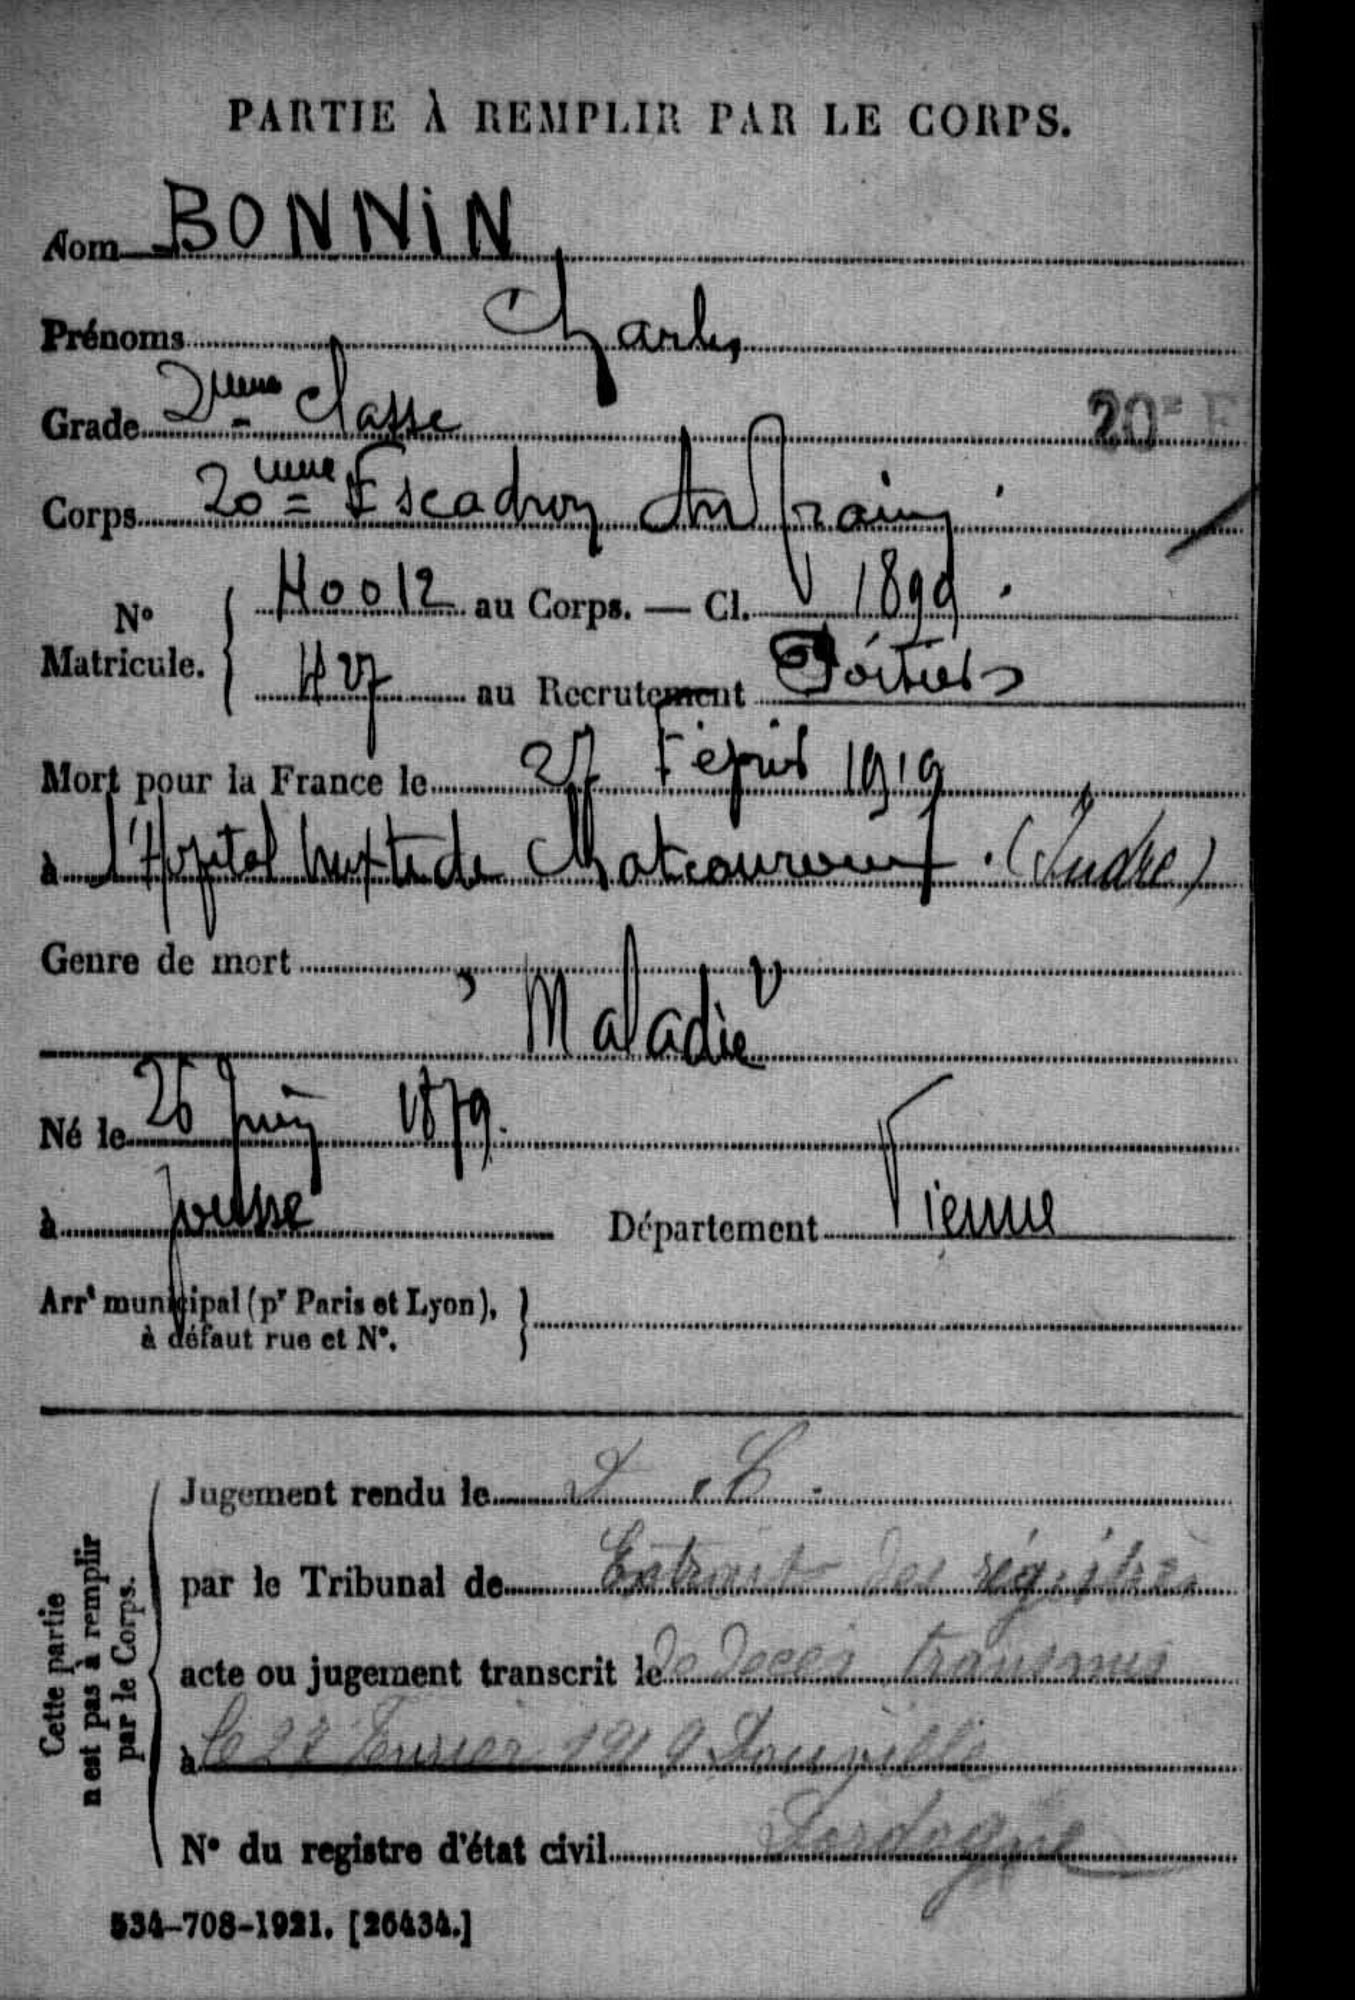 PARTIE À REMPLIR PAR LE CORPS.
Nom BONNIN
Prénoms Charles
Grade 2ème classe
20e E
Corps 20ème Escadron du Train
No Matricule. 40012 au Corps. — Cl. 1899
427 au Recrutement Poitiers
Mort pour la France le 27 Février 1919
à l'Hopital mixte de Chateauroux (Indre)
Genre de mort
Maladie
Né le 26 Juin 1879.
à Jousse Département Vienne
Arrt municipal (pr Paris et Lyon),
à défaut rue et No.
Cette partie
n'est pas à remplir
par le Corps.
Jugement rendu le
par le Tribunal de Extrait des registres
acte ou jugement transcrit le de décès transmis
à le 27 Fevrier 1919 Douville
No du registre d'état civil Dordogne
534-708-1921. [26434.]